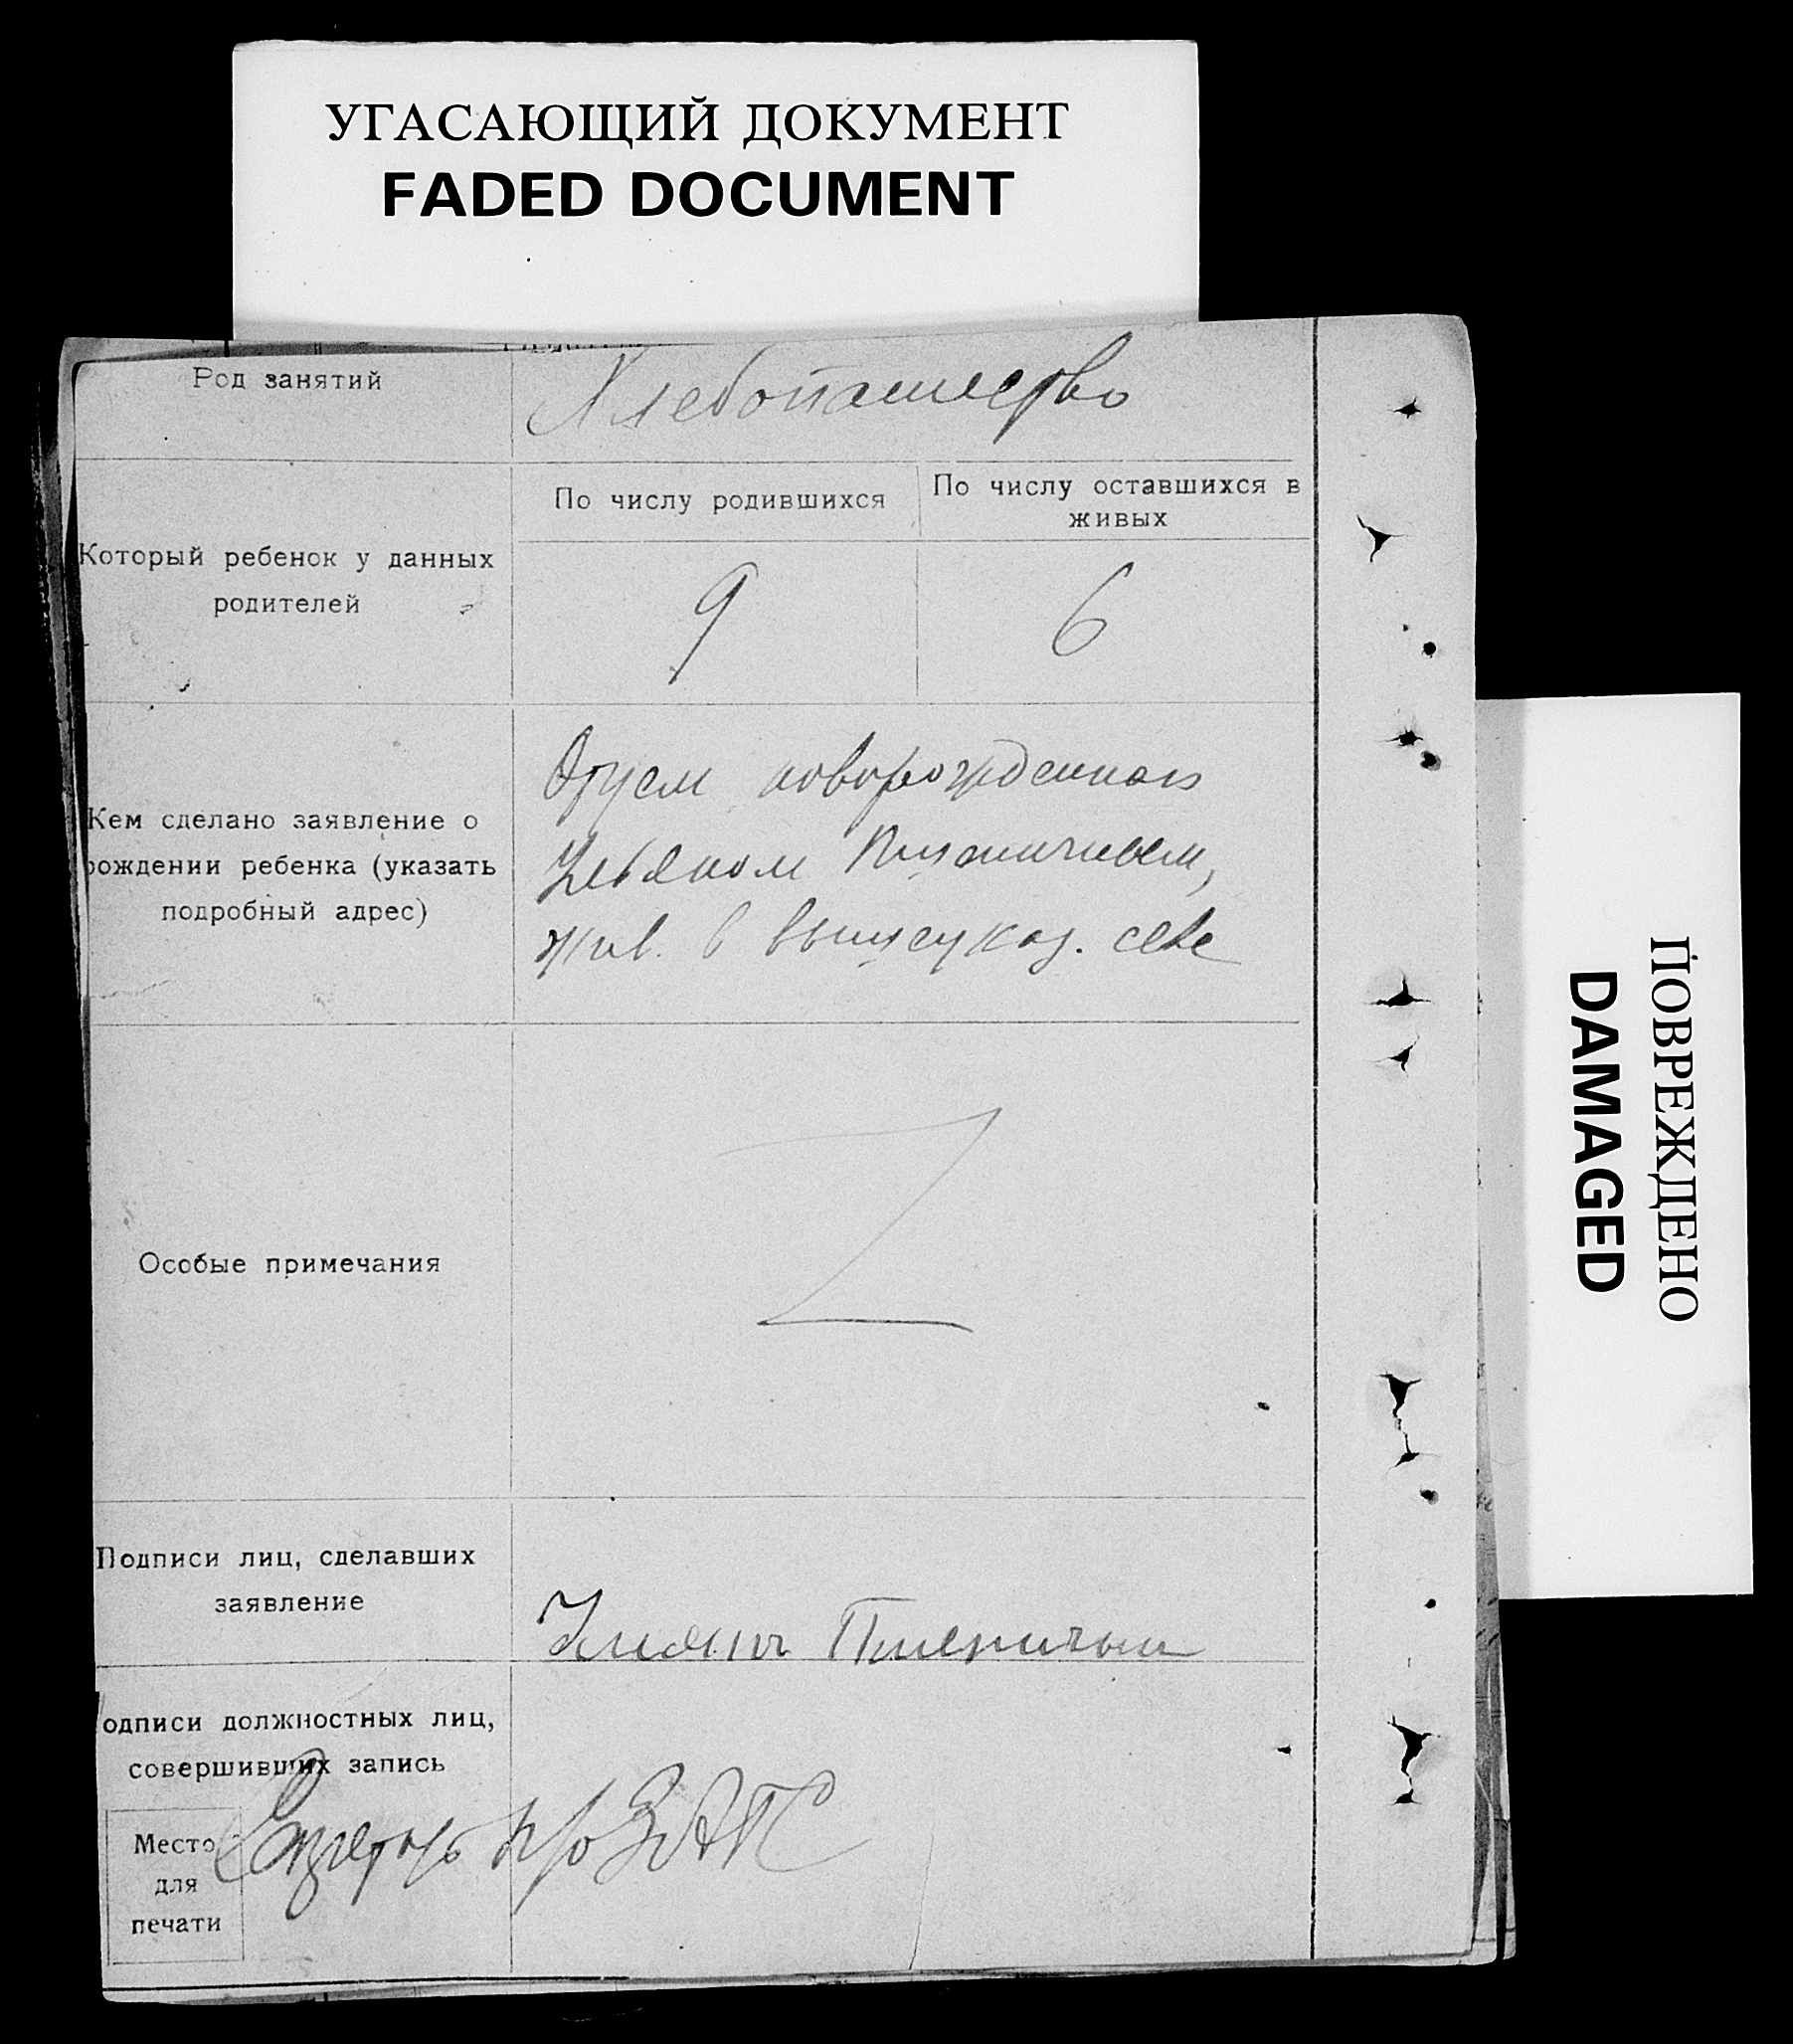 УГАСАЮЩИЙ ДОКУМЕНТ
FADED DOCUMENT
Род занятий
Хлебопашество
Который ребенок у данных
родителей
По числу родившихся
По числу оставшихся в
живых
9
6
Кем сделано заявление о
рождении ребенка (указать
подробный адрес)
Отцем новорожденного
Ульяном Пшеничным,
жив. в вышеуказ. селе
Особые примечания
Подписи лиц, сделавших
заявление
Пшеничный
одписи должностных лиц,
совершивших запись
Место
для
печати
ЗАГС
ПОВРЕЖДЕНО
DAMAGED